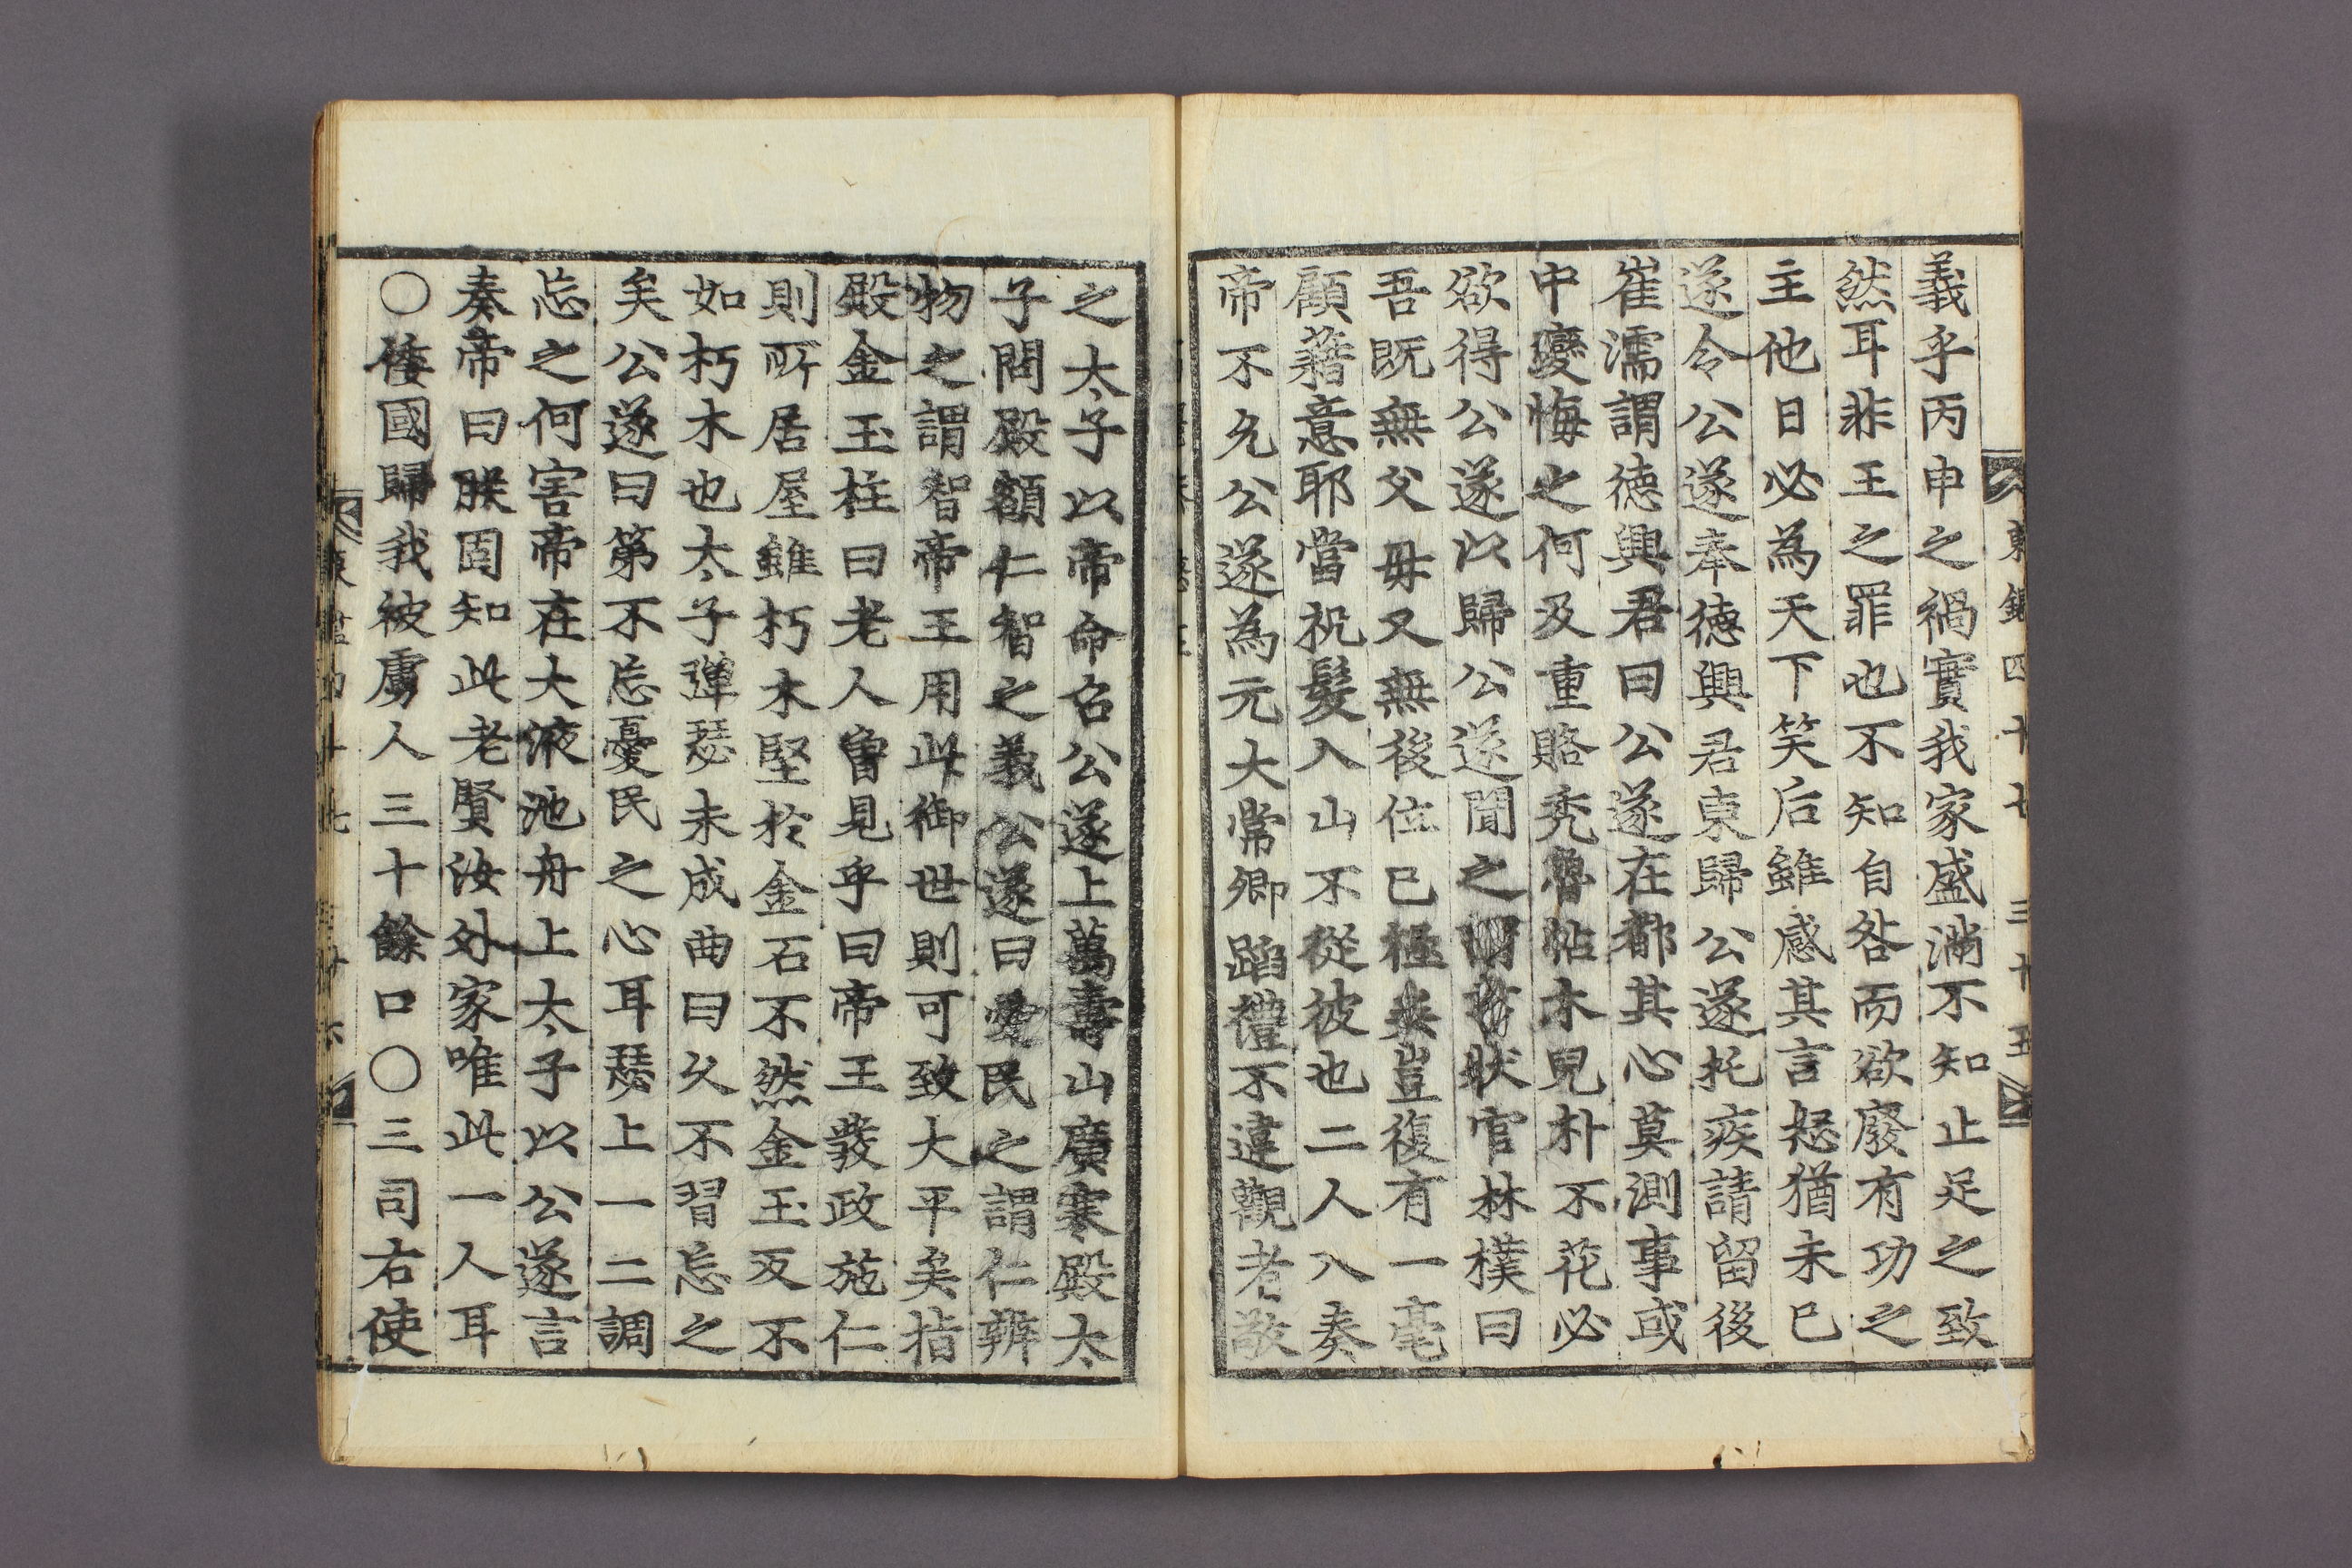 東鑑四十七 三十五
義乎丙申之禍實我家盛滿不知止足之致
然耳非王之罪也不知自咎而欲廢有功之
主他日必為天下笑后雖感其言怒猶未已
遂令公遂奉德興君東歸公遂托疾請留後
崔濡謂德興君曰公遂在都其心莫測事或
中變悔之何及重賂禿魯帖木兒朴不花必
欲得公遂以歸公遂聞之謂書狀官林樸曰
吾既無父母又無後位已極矣豈復有一毫
顧藉意耶當祝髮入山不從彼也二人入奏
帝不允公遂為元大常卿蹈禮不違觀者敬
之太子以帝命召公遂上萬壽山廣寒殿太
子問殿額仁智之義公遂曰愛民之謂仁辨
物之謂智帝王用此御世則可致大平矣指
殿金玉柱曰老人曾見乎曰帝王發政施仁
則所居屋雖朽木堅於金石不然金玉反不
如朽木也太子彈瑟未成曲曰久不習忘之
矣公遂曰第不忘憂民之心耳瑟上一二調
忘之何害帝在大液池舟上太子以公遂言
奏帝曰朕固知此老賢汝外家唯此一人耳
○倭國歸我被虜人三十餘口○三司右使